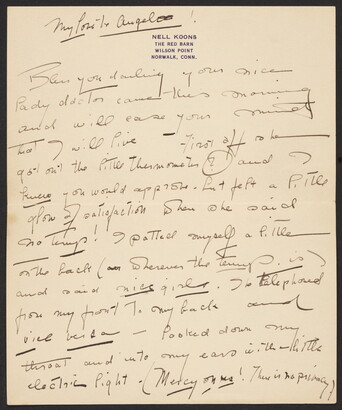 My Love's Angel !
NELL KOONS
THE RED BARN
WILSON POINT
NORWALK, CONN.
Bless you darling your nice
lady doctor came this morning
and will ease your mind
that I will live – First off she
got out the little thermometer and I
knew you would approve. but felt a little
glow of satisfaction when she said
no temp! I patted myself a little
on the back (or wherever the temp. is)
and said nice girls. So telephoned
from my front to my back and
vice versa – looked down my
throat and into my ears with a little
electric light – (Mercy on us! This is no privacy)